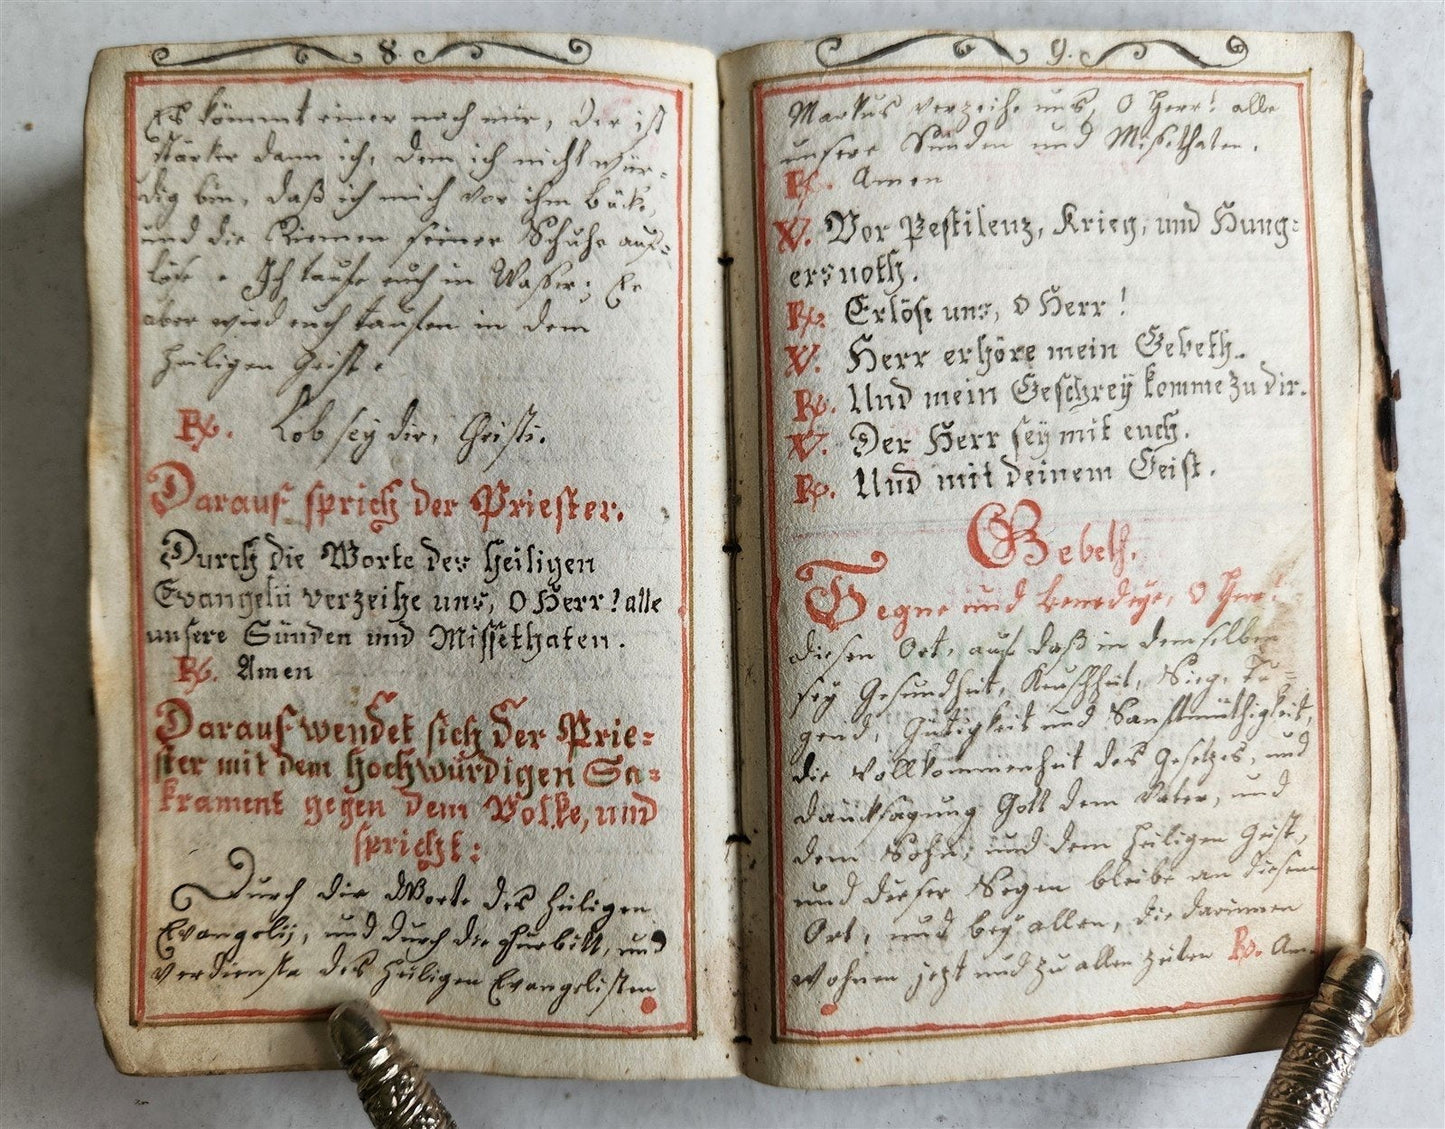 8.
Es kömmt einer nach mir, der ist
stärker dann ich, dem ich nicht wür=
dig bin, daß ich mich vor ihm bücke,
und die Riemen seiner Schuhe auf=
löse. Ich taufe euch in Wasser; Er
aber wird euch taufen in dem
Heiligen Geist.
R. Lob sey dir, Christi.
Darauf sprich der Priester.
Durch die Worte des heiligen
Evangelii verzeihe uns, O Herr! alle
unsere Sünden und Missethaten.
R. Amen
Darauf wendet sich der Prie=
ster mit dem hochwürdigen Sa=
krament gegen dem Volke, und
spricht:
Durch die Worte des heiligen
Evangelij, und durch die Furbitt, und
verdienste des heiligen Evangelisten
9.
Markus verzeihe uns, O Herr! alle
unsere Sünden und Missethaten.
R. Amen
V. Vor Pestilenz, Krieg, und Hung=
ersnoth.
R. Erlöse uns, O Herr!
V. Herr erhöre mein Gebeth.
R. Und mein Geschrey komme zu dir.
V. Der Herr sey mit euch.
R. Und mit deinem Geist.
Gebeth.
Segne und benedeye, O Herr!
diesen Ort, auf daß in demselben
sey Gesundheit, Keuschheit, Sieg, Tu=
gend, Gütigkeit und Sanftmüthigkeit,
die vollkommenheit des Gesetzes, und
Dancksagung Gott dem Vater, und
dem Sohn, und dem heiligen Geist,
und dieser Segen bleibe an diesem
Ort, und bey allen, die darinnen
wohnen jetzt und zu allen zeiten R. Am.